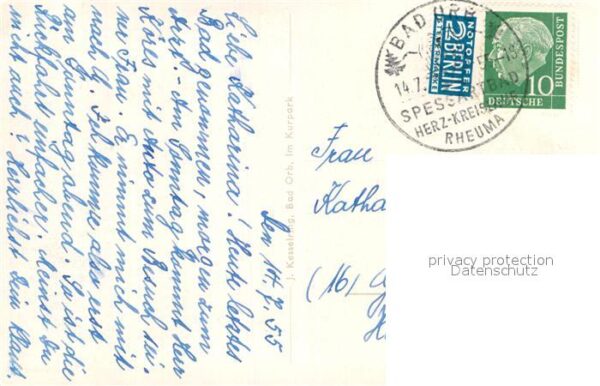 den 14.7.55
Liebe Katharina! Heute letztes
Bad genommen, morgen zum
Arzt. Am Sonntag kommt Herr
mit Auto zum Besuch sei-
ner Frau. Er nimmt mich mit
nach G. Ich komme also erst
am Sonntag abend. So ist die
Rückfahrt einfacher. Meinst Du
nicht auch? Herzlichst Dein Klaus.
J. Kesselring, Bad Orb, Im Kurpark
BAD ORB
14.7.
SPESSARTBAD
HERZ-KREISL
RHEUMA
NOTOPFER
2 BERLIN
STEUERMARKE
10
DEUTSCHE
BUNDESPOST
Frau
Katha
(16)
privacy protection
Datenschutz